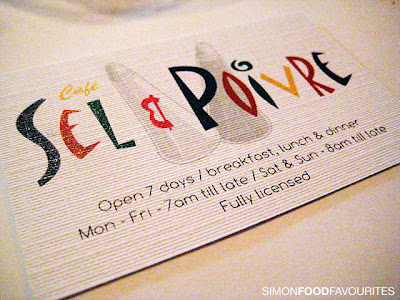 Cafe
SEL & POIVRE
Open 7 days / breakfast, lunch & dinner
Mon - Fri - 7am till late / Sat & Sun - 8am till late
Fully licensed
SIMONFOODFAVOURITES